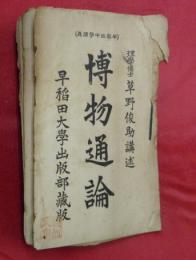 理學博士 草野俊助講述
博物通論
早稻田大學出版部藏版